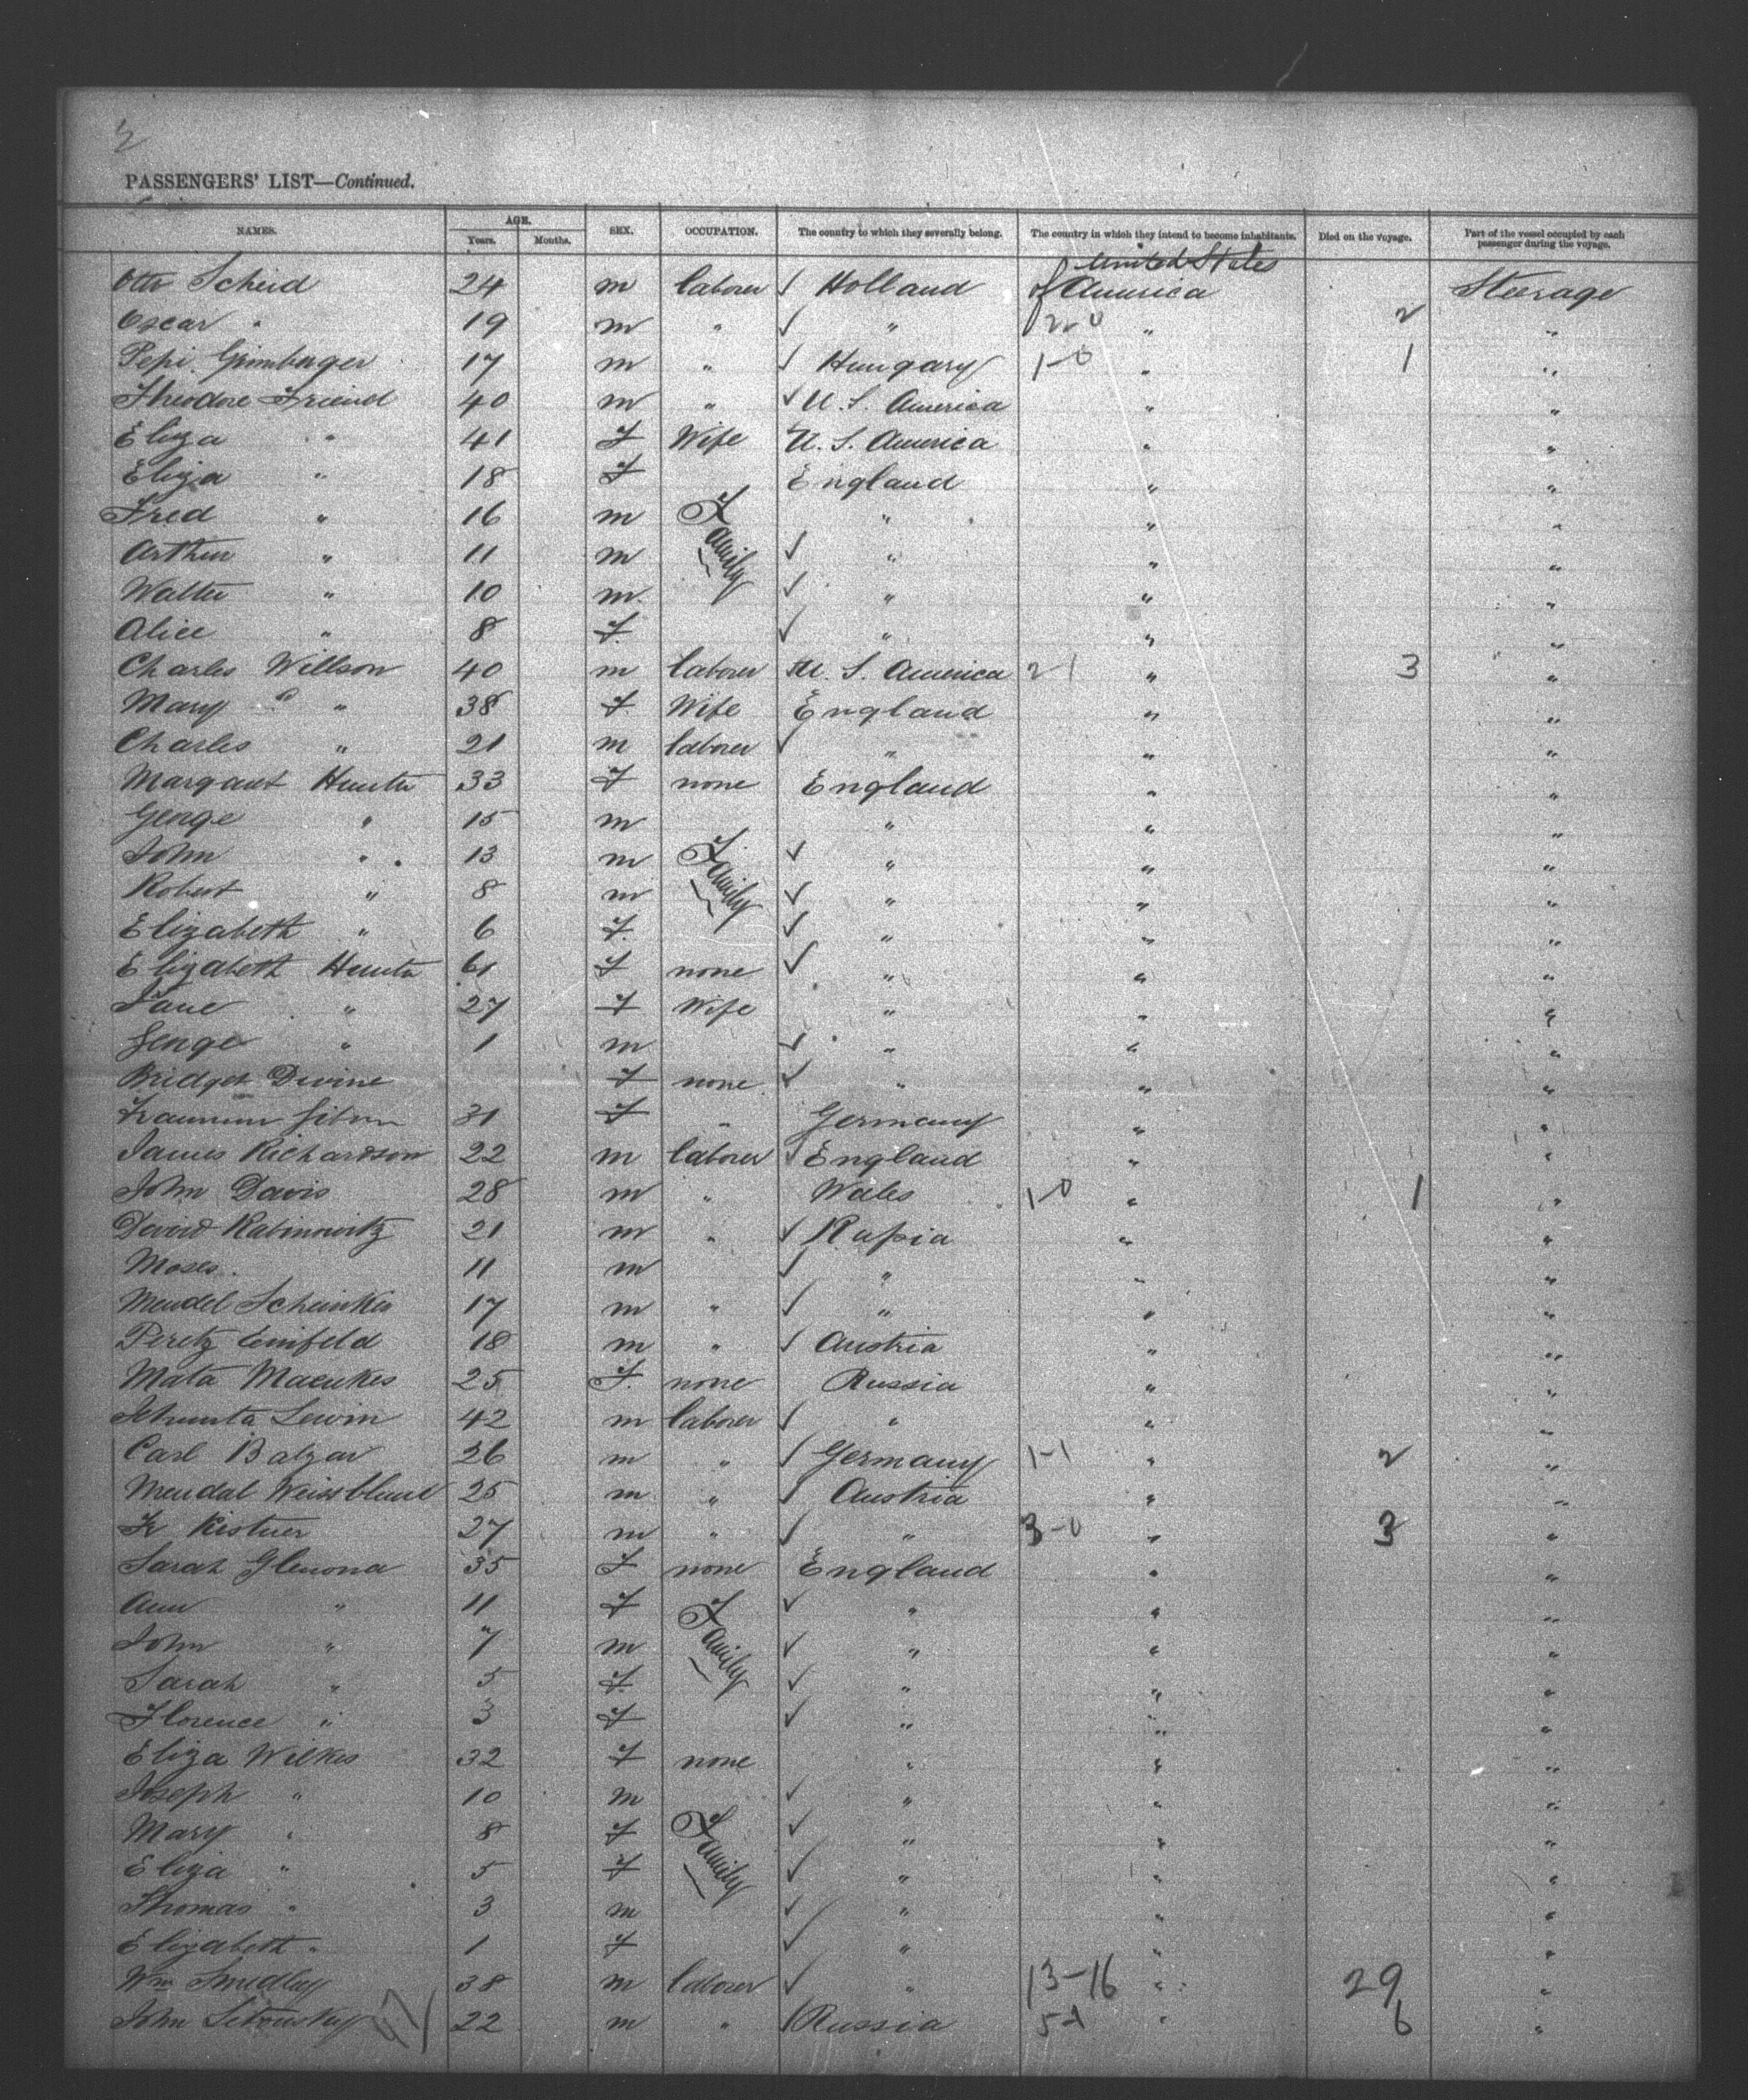 2
PASSENGERS' LIST—Continued.
NAMES. AGE. Years. Months. SEX. OCCUPATION. The country to which they severally belong. The country in which they intend to become inhabitants. Died on the voyage. Part of the vessel occupied by each passenger during the voyage.
Otto Scheid 24 m laborer √ Holland United States of America Steerage
Oscar " 19 m " √ " 2-0 " 2 "
Pepi Grimberger 17 m " √ Hungary 1-0 " 1 "
Theodore Friend 40 m " √ U. S. America " "
Eliza " 41 F Wife U. S. America " "
Eliza " 18 F England " "
Fred " 16 m Family " " "
Arthur " 11 m √ " " "
Walter " 10 m √ " " "
Alice " 8 F √ " " "
Charles Willson 40 m laborer U. S. America 2 1 " 3 "
Mary " 38 F Wife England " "
Charles " 21 m laborer √ " " "
Margaret Hunter 33 F none England " "
George " 15 m " " "
John " 13 m Family √ " " "
Robert " 8 m √ " " "
Elizabeth " 6 F √ " " "
Elizabeth Hunter 61 F none √ " " "
Jane " 27 F Wife " " "
George " 1 m √ " " "
Bridget Divine F none √ " " "
31 F " Germany " "
James Richardson 22 m laborer √ England " "
John Davis 28 m " Wales 1-0 " 1 "
David Rabinowitz 21 m " √ Rußia " "
Moses 11 m √ " " "
Mendel Scheinkis 17 m " √ " " "
Peretz Einfeld 18 m " √ Austria " "
Mata Macukes 25 F none Russia " "
Lewin 42 m laborer √ " " "
Carl Balzar 26 m " √ Germany 1-1 " 2 "
Mendal Weissblum 25 m " √ Austria " "
Fr Kistner 27 m " √ " 3-0 " 3 "
Sarah Glenona 35 F none England " "
Ann " 11 F Family √ " " "
John " 7 m √ " " "
Sarah " 5 F √ " " "
Florence " 3 F √ " " "
Eliza Wilkes 32 F none " " "
Joseph " 10 m √ " " "
Mary " 8 F Family √ " " "
Eliza " 5 F √ " " "
Thomas " 3 m √ " " "
Elizabeth " 1 F √ " " "
Wm Smedley 38 m laborer √ " 13-16 " 29 "
John 22 m " √ Russia 5-1 " 6 "